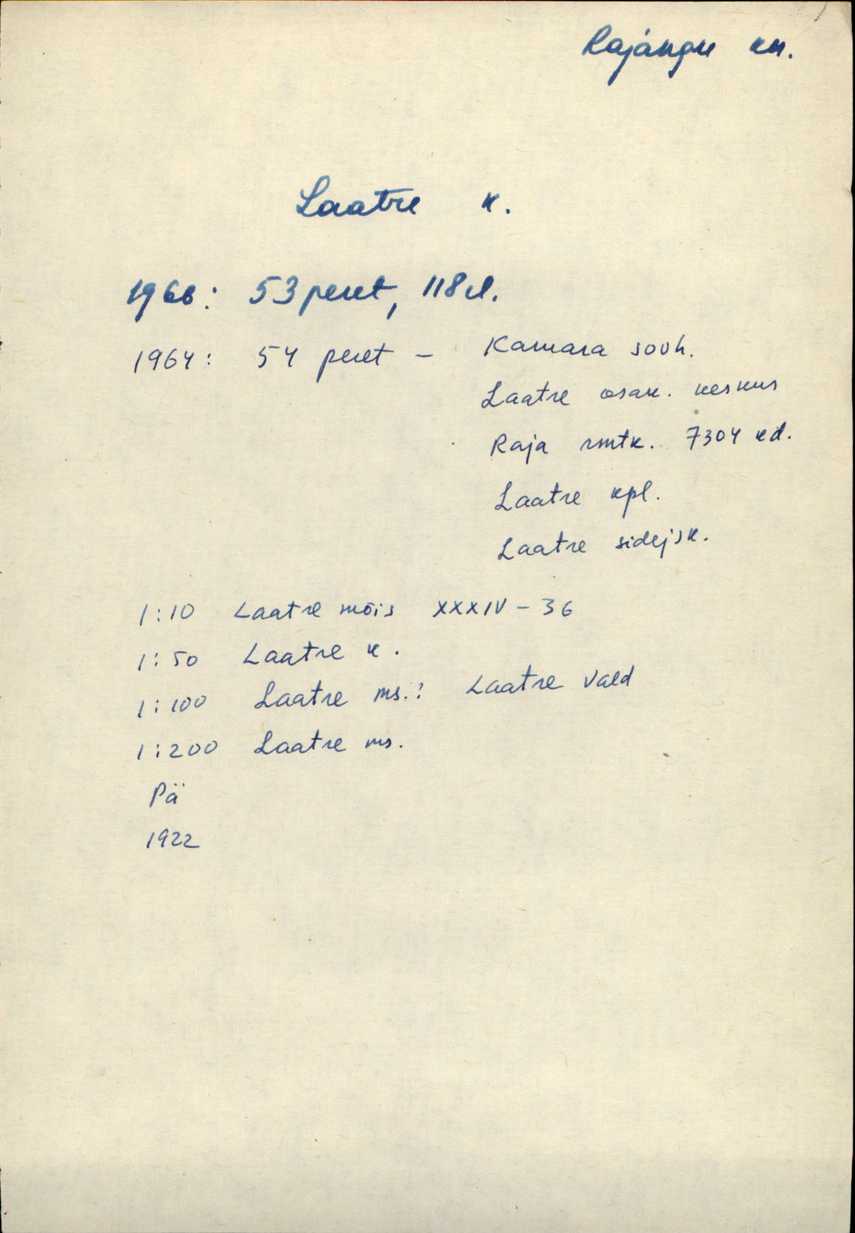 Rajangu kn.
Laatre k.
1966: 53 peret, 118 el.
1964: 54 peret – Kamara sovh.
Laatre osak. keskus
Raja rmtk. 7304 kd.
Laatre kpl.
Laatre sidejsk.
1:10 Laatre mõis XXXIV – 36
1:50 Laatre k.
1:100 Laatre ms.: Laatre vald
1:200 Laatre ms.
Pä
1922